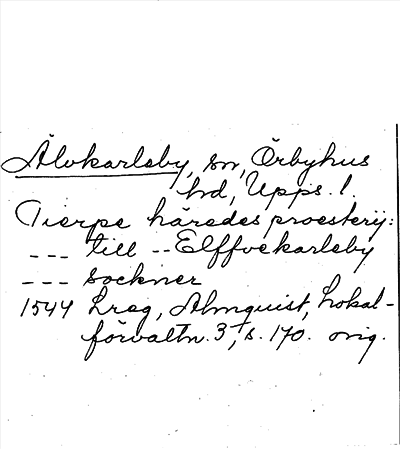 Älvkarleby, sn, Örbyhus
hd, Upps. l.
Tierpe häredes proesterij:
--- till -- Elffvekarleby
--- sockner
1544 Lreg, Almquist, Lokal-
förvaltn. 3, s. 170. orig.